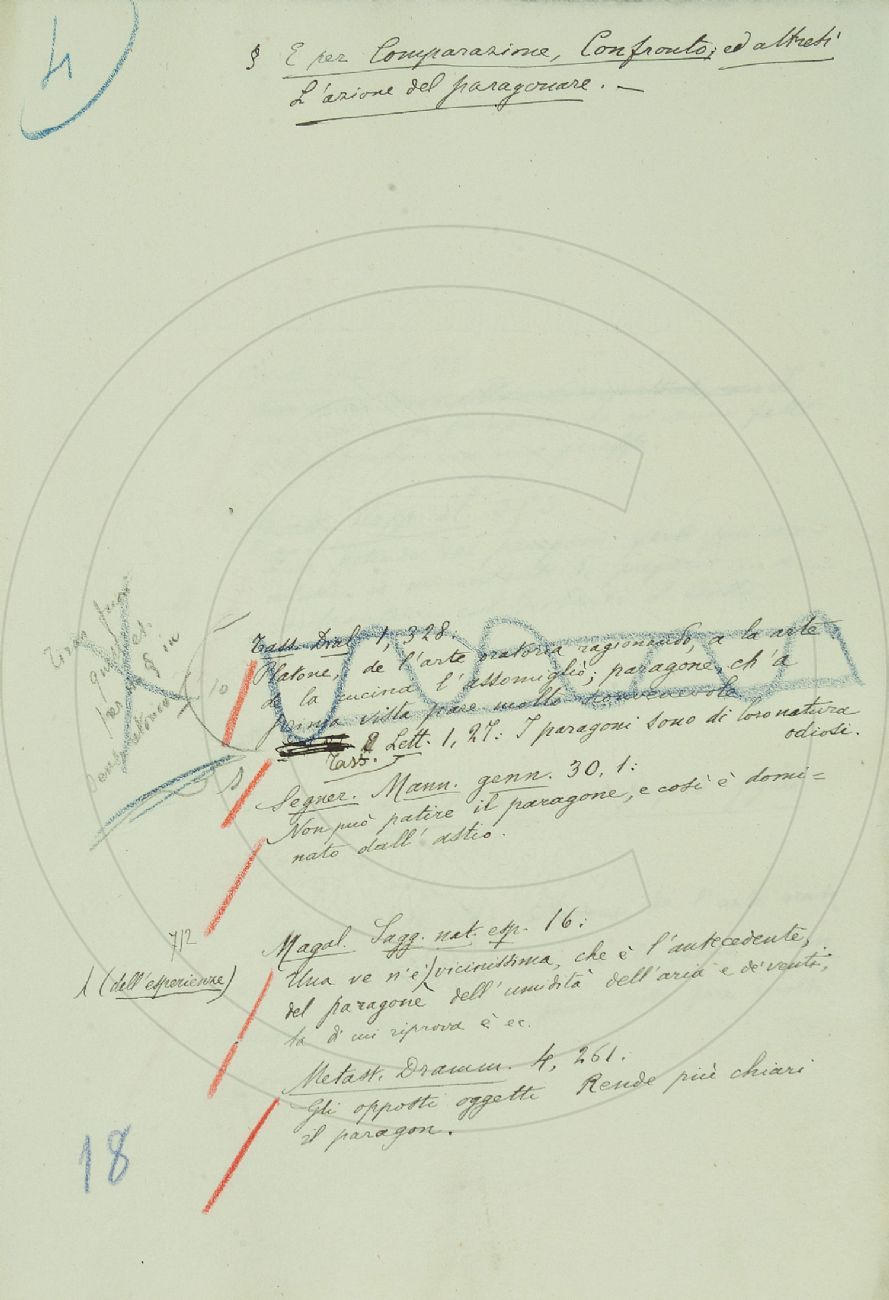 4
§ E per Comparazione, Confronto; ed altresì
L'azione del paragonare. —
Tass. Dial. 1, 328:
Platone, de l'arte oratoria ragionando, a la arte
de la cucina l'assomigliò; paragone, ch'a
prima vista pare molto
Tass. Lett. 1, 27: I paragoni sono di loro natura
odiosi.
Segner. Mann. genn. 30, 1:
Non può patire il paragone, e così è domi=
nato dall'astio.
Magal. Sagg. nat. esp. 16:
Una ve n'è) vicinissima, che è l'antecedente,
(dell'esperienze)
del paragone dell'umidità dell'aria e de' venti,
la di cui riprova è ec.
Metast. Dramm. 4, 261:
Gli opposti oggetti Rende più chiari
il paragon.
18